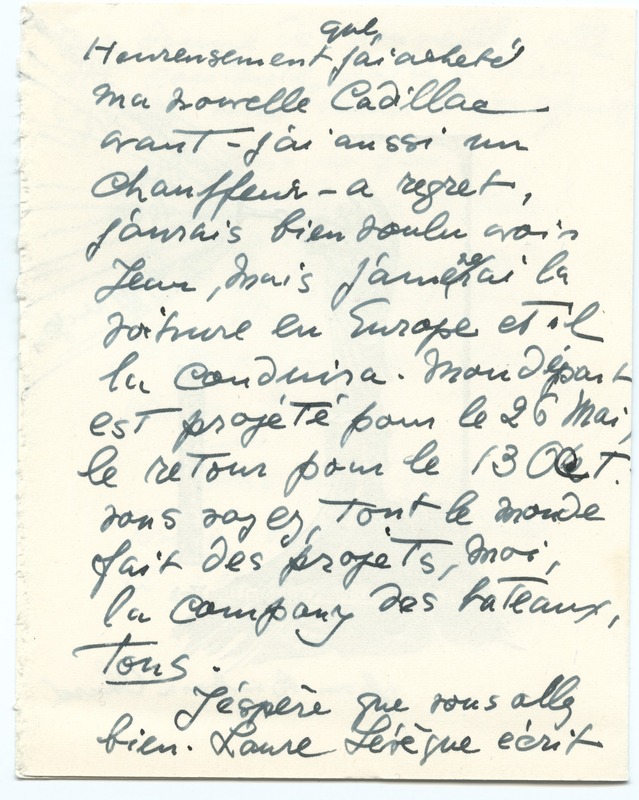 que
Heureusement j'ai acheté
ma nouvelle Cadillac
avant - j'ai aussi un
chauffeur - a regret,
j'aurais bien voulu avoir
Jean, mais j'amènerai la
voiture en Europe et il
la conduira. Mon départ
est projété pour le 26 Mai,
le retour pour le 13 Oct.
vous voyez, tout le monde
fait des projets, moi,
la company des bateaux,
tous.
J'éspère que vous allez
bien. Laure Lévèque ecrit